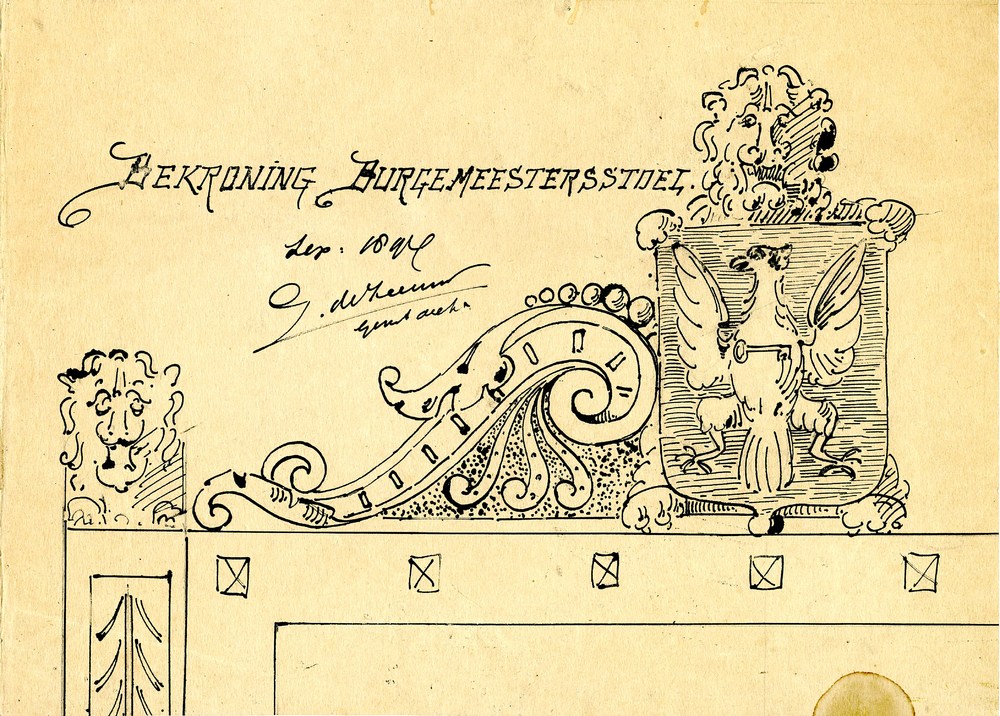 BEKRONING BURGEMEESTERSSTOEL.
Sep: 1894
G. de Leeuw
Gem.t archt.